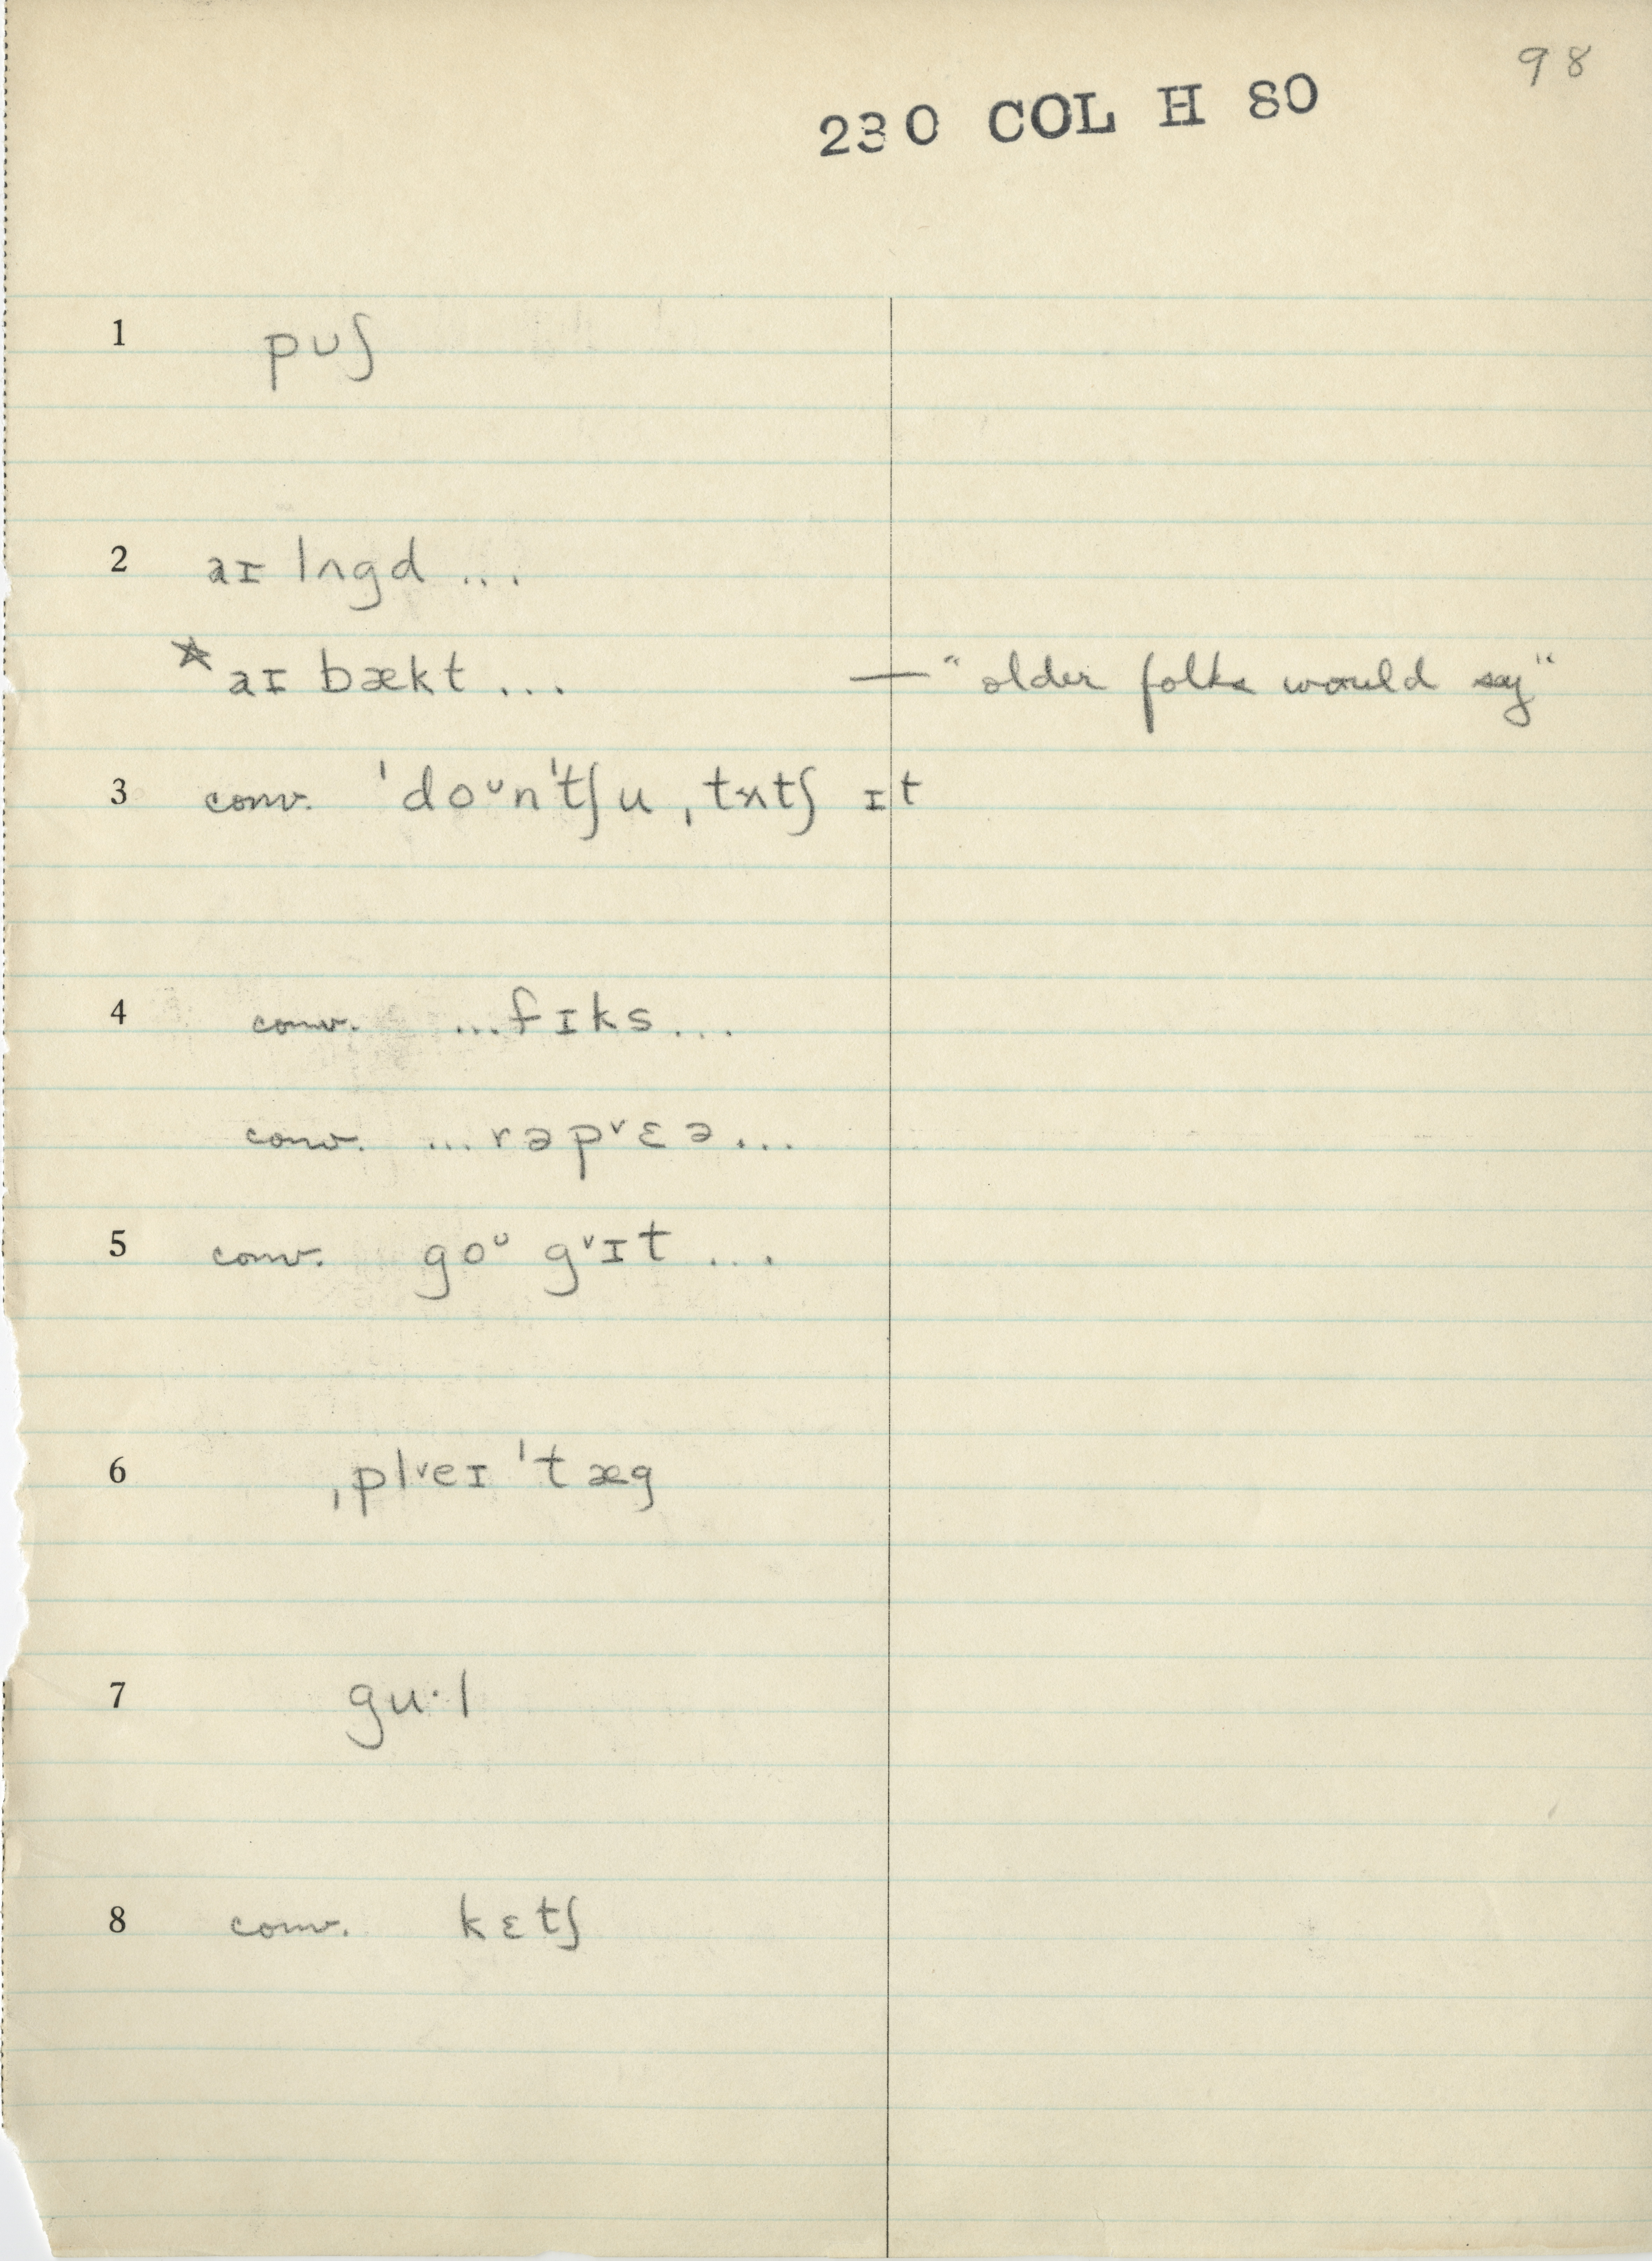 98
230 COL H 80
1 pᴜʃ
2 aɪ lʌgd ...
* aɪ bækt ... — "older folks would say"
3 conv. ˈdoᶷnˈtʃu ˌtʌtʃ ɪt
4 conv. ...fɪks...
conv. ...rəpᵛɛə...
5 conv. goᶷ gᵛɪt ...
6 ˌplᵛeɪ ˈtæg
7 gu·l
8 conv. kɛtʃ